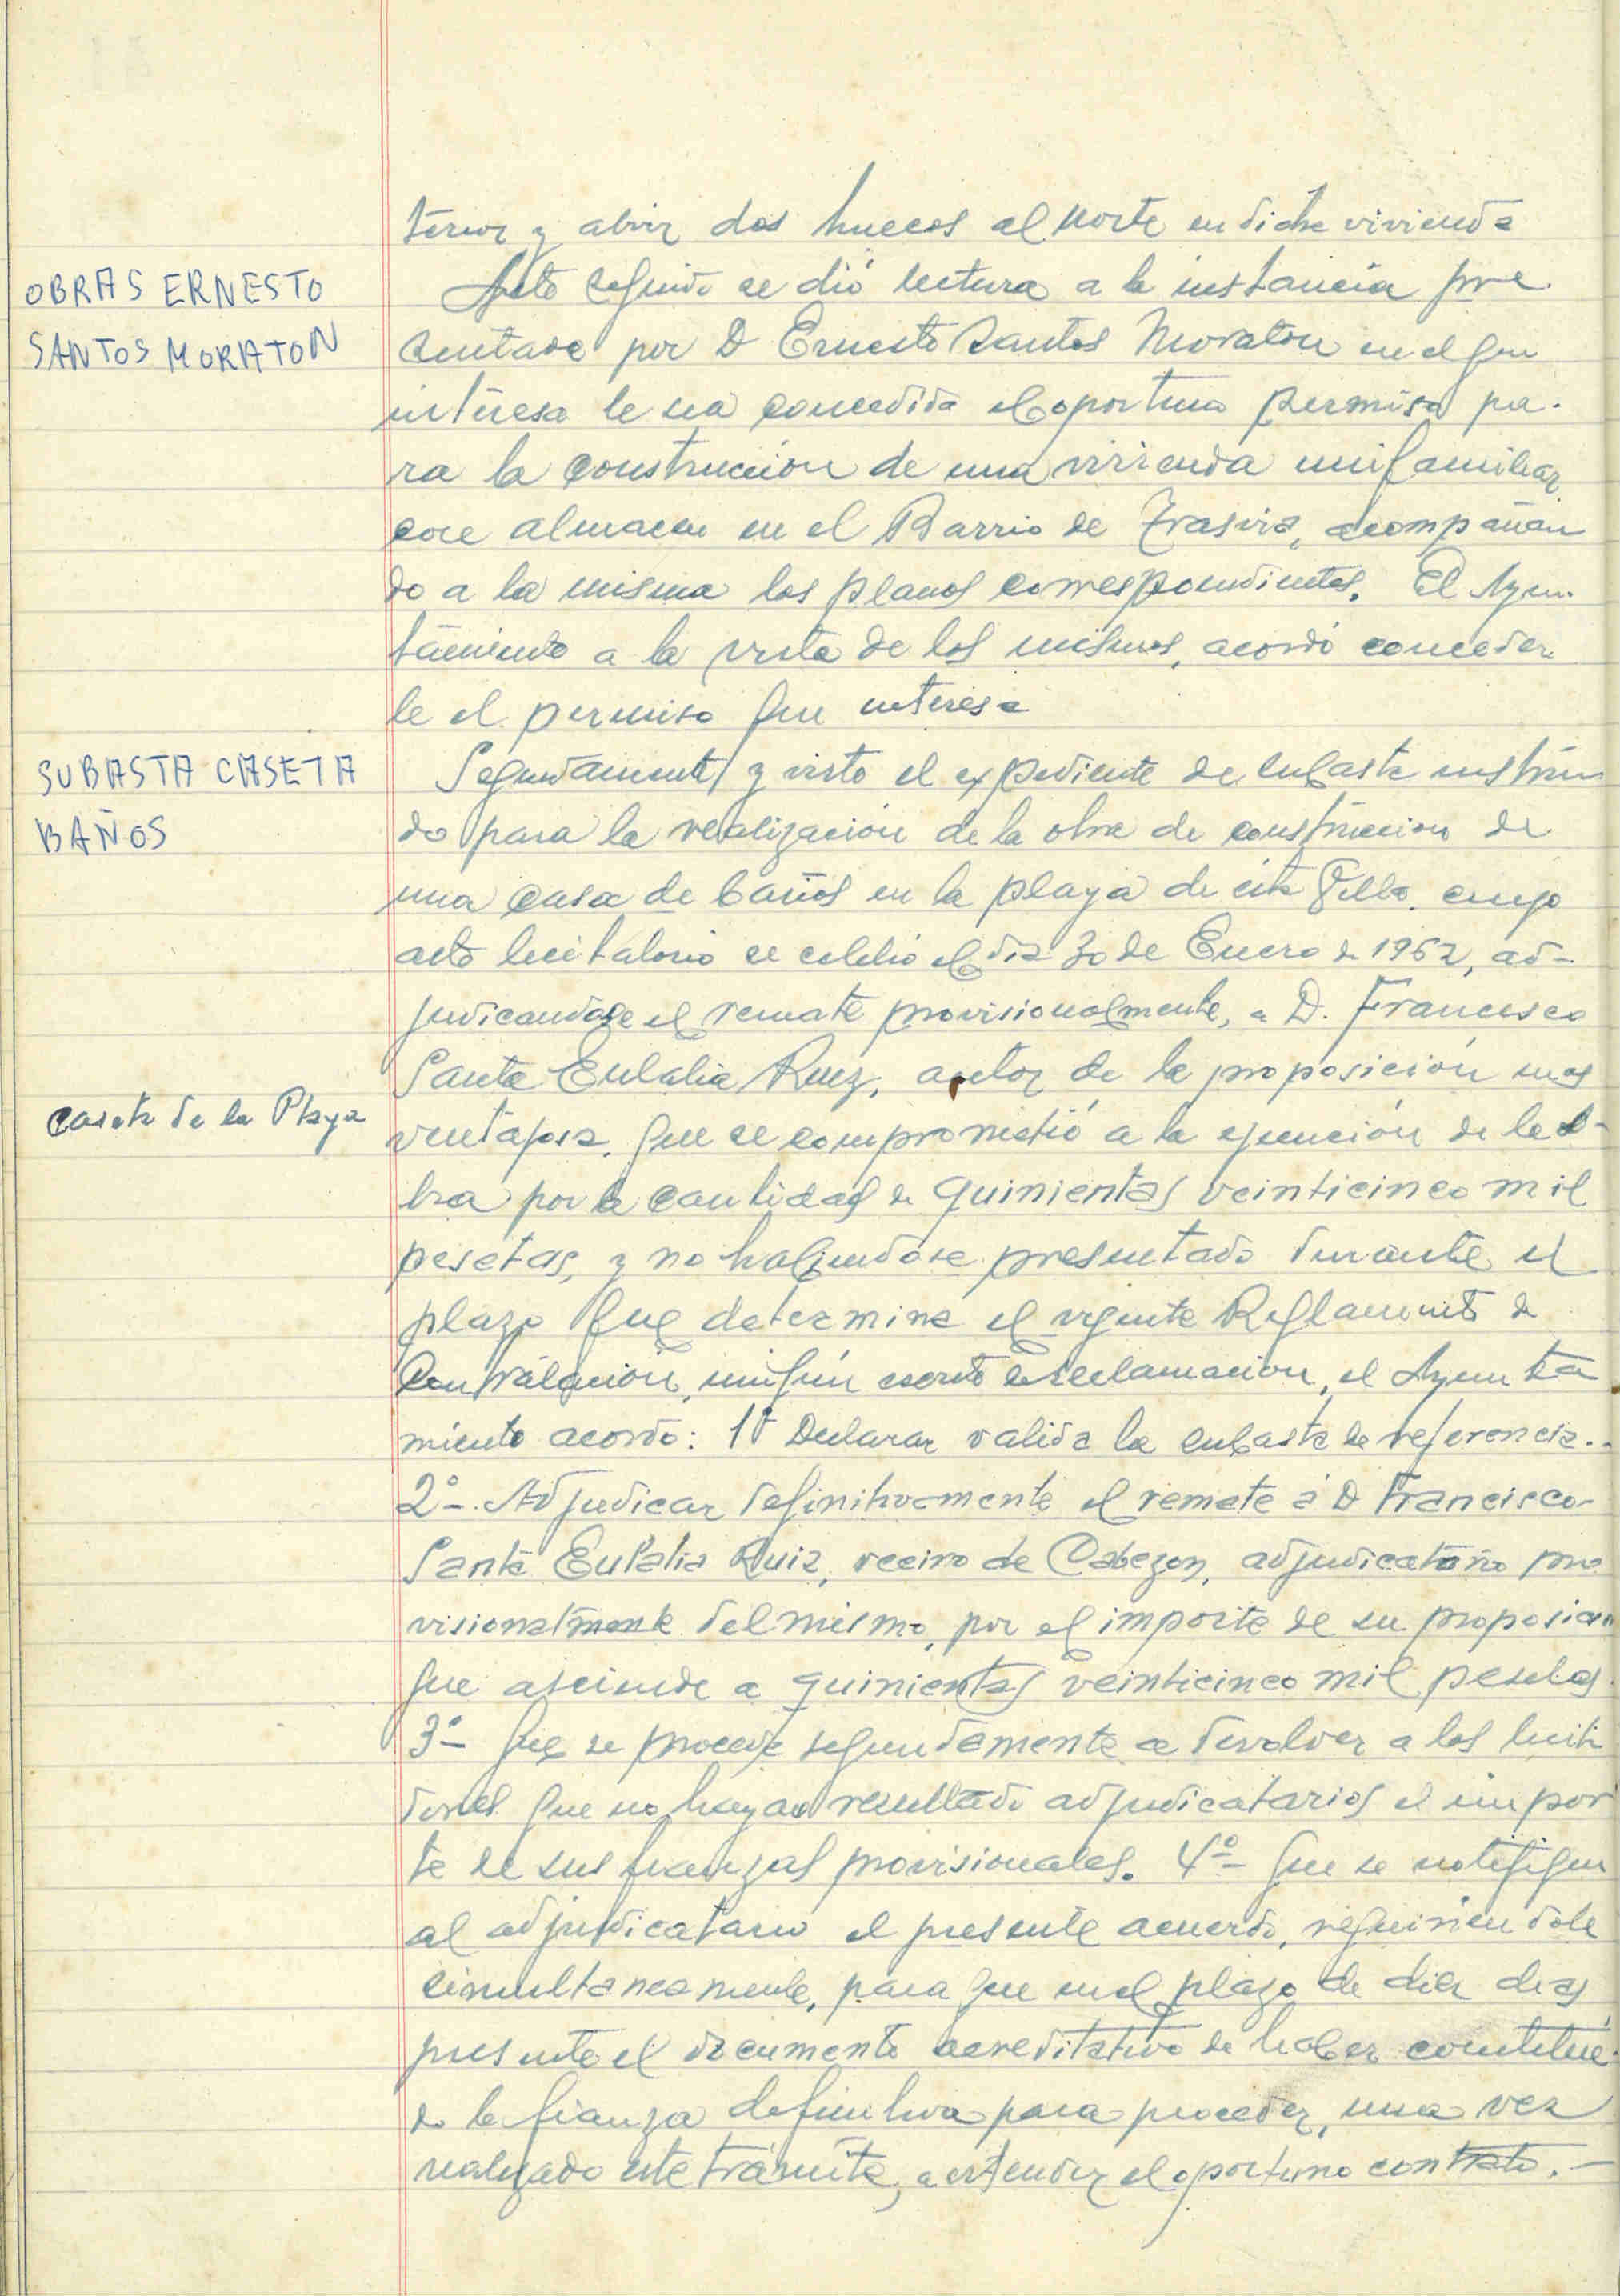 terior y abrir dos huecos al norte en dicha vivienda
OBRAS ERNESTO
SANTOS MORATON
Acto seguido se dió lectura a la instancia pre
sentada por D Ernesto Santos Moraton en el que
interesa le sea concedida el oportuno permiso pa-
ra la construccion de una vivienda unifamiliar
con almacen en el Barrio de Trasvia, acompañan
do a la misma los planos correspondientes. El Ayun-
tamiento a la vista de los mismos, acordó conceder
le el permiso que interesa
SUBASTA CASETA
BAÑOS
Seguidamente y visto el expediente de subasta instrui
do para la realización de la obra de construccion de
una casa de baños en la playa de esta Villa, cuyo
acto licitatorio se celebró el dia 30 de Enero de 1962, ad-
judicandose el remate provisionalmente, a D. Francisco
Santa Eulalia Ruiz, autor de la proposición mas
caseta de la Playa
ventajosa, que se comprometió a la ejecución de la o-
bra por la cantidad de quinientas veinticinco mil
pesetas, y no habiendose presentado durante el
plazo que determina el vigente Reglamento de
Contratación, ningún escrito de reclamacion, el Ayunta
miento acordó: 1º Declarar valida la subasta de referencia.-
2º-. Adjudicar definitivamente el remate a D Francisco-
Santa Eulalia Ruiz, vecino de Cabezon, adjudicatario pro
visionalmente del mismo, por el importe de su proposicion
que asciende a quinientas veinticinco mil pesetas
3º- Que se procede seguidamente a devolver a los licita
dores que no hayan resultado adjudicatarios el impor
te de sus fianzas provisionales. 4º- Que se notifique
al adjudicatario el presente acuerdo, requiriendole
simultaneamente, para que en el plazo de diez dias
presente el documento acreditativo de haber constitui-
do la fianza definitiva para proceder, una vez
realizado este trámite, a extender el oportuno contrato.-